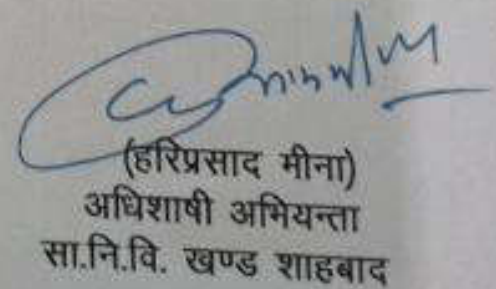 (हरिप्रसाद मीना)
अधिशाषी अभियन्ता
सा.नि.वि. खण्ड शाहबाद